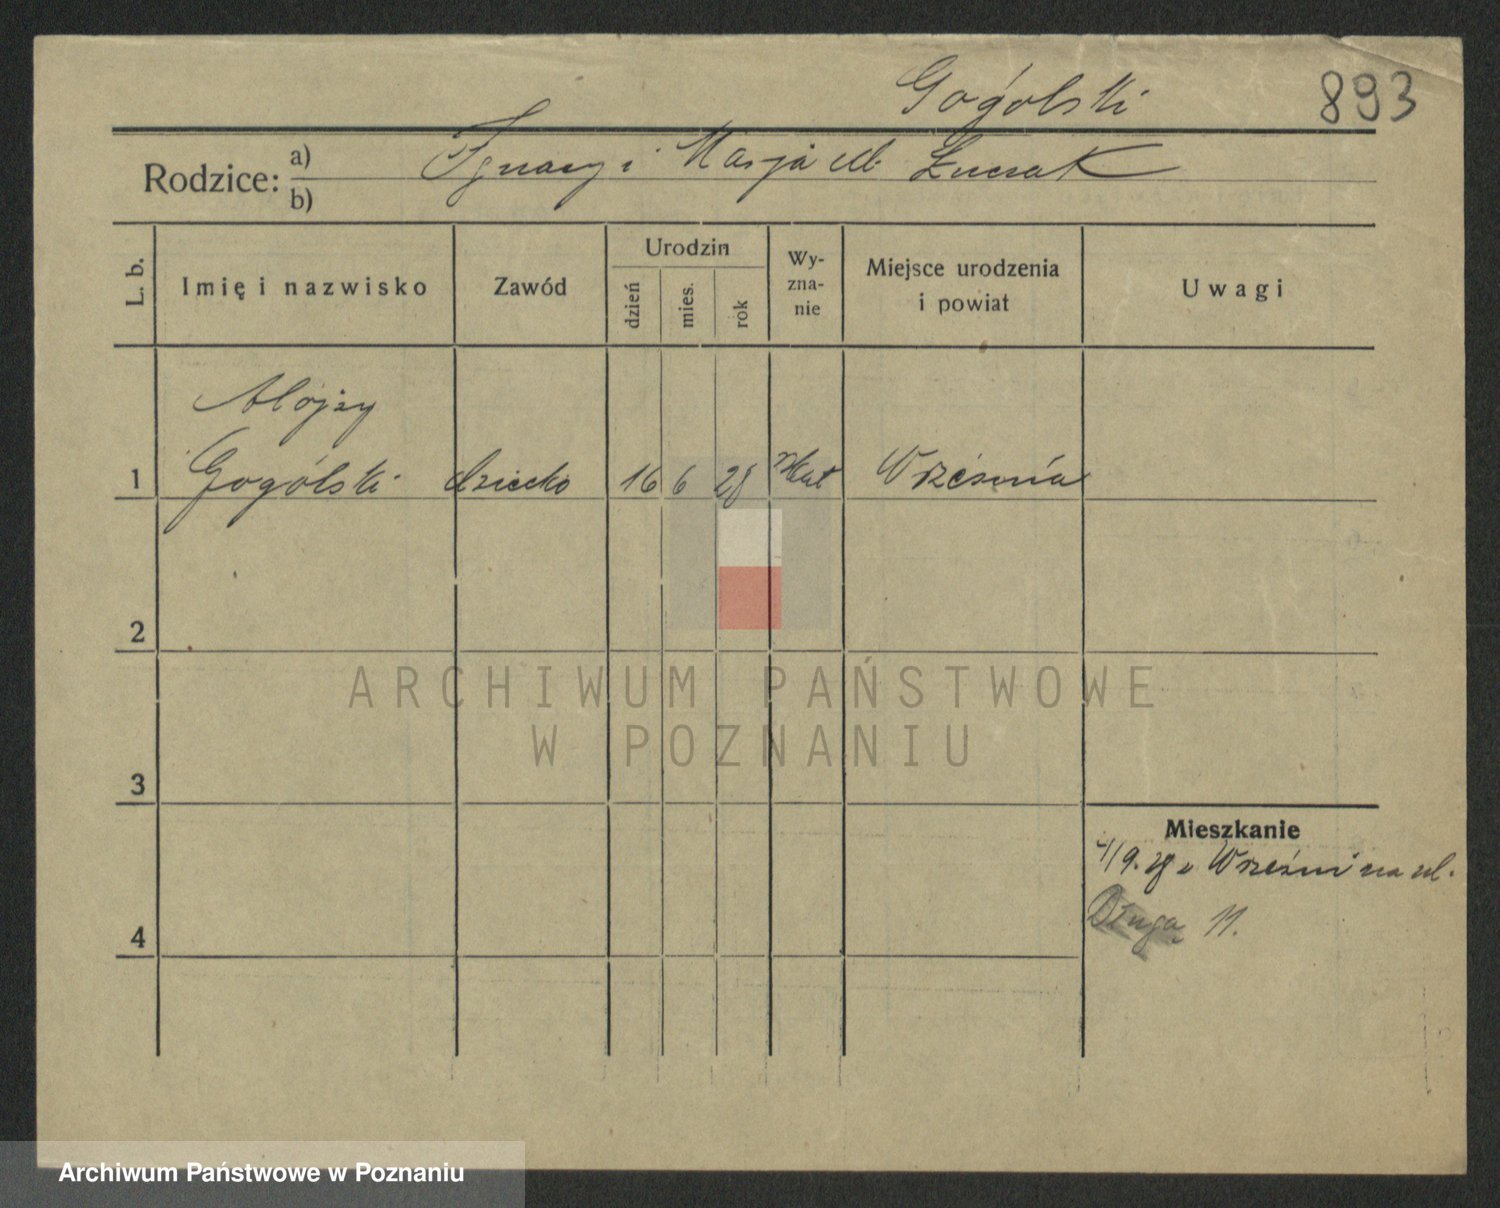 Gogólski
893
Rodzice: a) Ignacy i Marja
b)
L. b.
Imię i nazwisko
Zawód
Urodzin
dzień
mies.
rok
Wy-
zna-
nie
Miejsce urodzenia
i powiat
Uwagi
Alojzy
1 Gogólski dziecko 16 6 28 Września
2
ARCHIWUM PAŃSTWOWE
W POZNANIU
3
Mieszkanie
Wrześni na ul.
4
Długa 11.
Archiwum Państwowe w Poznaniu